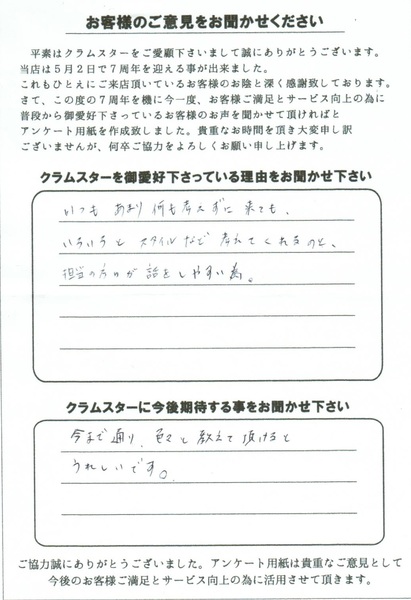 お客様のご意見をお聞かせください
平素はクラムスターをご愛顧下さいまして誠にありがとうございます。
当店は５月２日で７周年を迎える事が出来ました。
これもひとえにご来店頂いているお客様のお陰と深く感謝致しております。
さて、この度の７周年を機に今一度、お客様ご満足とサービス向上の為に
普段から御愛好下さっているお客様のお声を聞かせて頂ければと
アンケート用紙を作成致しました。貴重なお時間を頂き大変申し訳
ございませんが、何卒ご協力をよろしくお願い申し上げます。
クラムスターを御愛好下さっている理由をお聞かせ下さい
いつも あまり 何も考えずに 来ても、
いろいろと スタイルなど 考えてくれるのと、
担当の方が 話をしやすい為。
クラムスターに今後期待する事をお聞かせ下さい
今まで通り、色々と教えて頂けると
うれしいです。
ご協力誠にありがとうございました。アンケート用紙は貴重なご意見として
今後のお客様ご満足とサービス向上の為に活用させて頂きます。